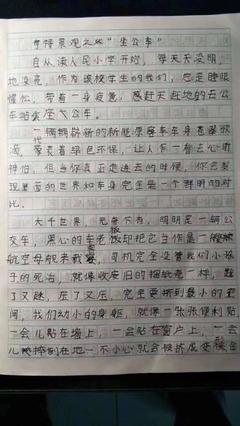 奇特景观之"坐公车"
自从读人民小学开时，每天天没明，
地没亮，作为该校学生的我们，总是睡眼
惺忪，带着一身疲惫，感赶天赶地的去公
车站坐公车。
一辆辆崭新的新能源客车车身
，写着绿色环保，让人午一看去心旷
神怡，但当你真正走进去的时候，你会发
现里面的世界和车身完全是一个鲜明的对
比。
大千世界，无奇不有，明明是一辆公
交车，黑心的车老板却把它当作是一艘
航空母舰来载客，司机完全没管我们小孩
子的死活，就像收废旧的捆纸壳一样，踩
了又踩，压了又压，完全要挤到最小的空
间，我们幼小的身躯，就像一张张便利贴
一会儿贴在墙上，一会贴在窗户上，一会
儿摔到在地一不小心就会被挤成变